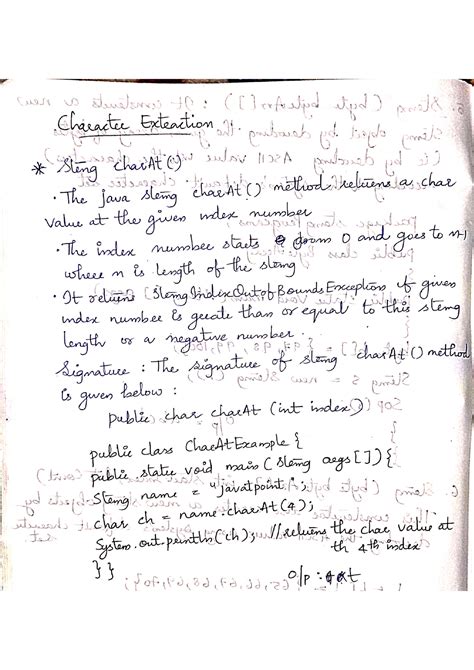 Character Extraction
* String charAt()
· The java string charAt() method returns a char
value at the given index number
· The index number starts from 0 and goes to n-1
where n is length of the string
· It returns StringIndexOutofBoundsException if given
index number is greate than or equal to this string
length or a negative number.
Signature : The signature of string charAt() method
is given below :
public char charAt (int index)
public class CharAtExample {
public static void main(String args[]){
String name = "javatpoint";
char ch = name.charAt(4);
System.out.println(ch); //returns the char value at
th 4th index
}}
O/p : t